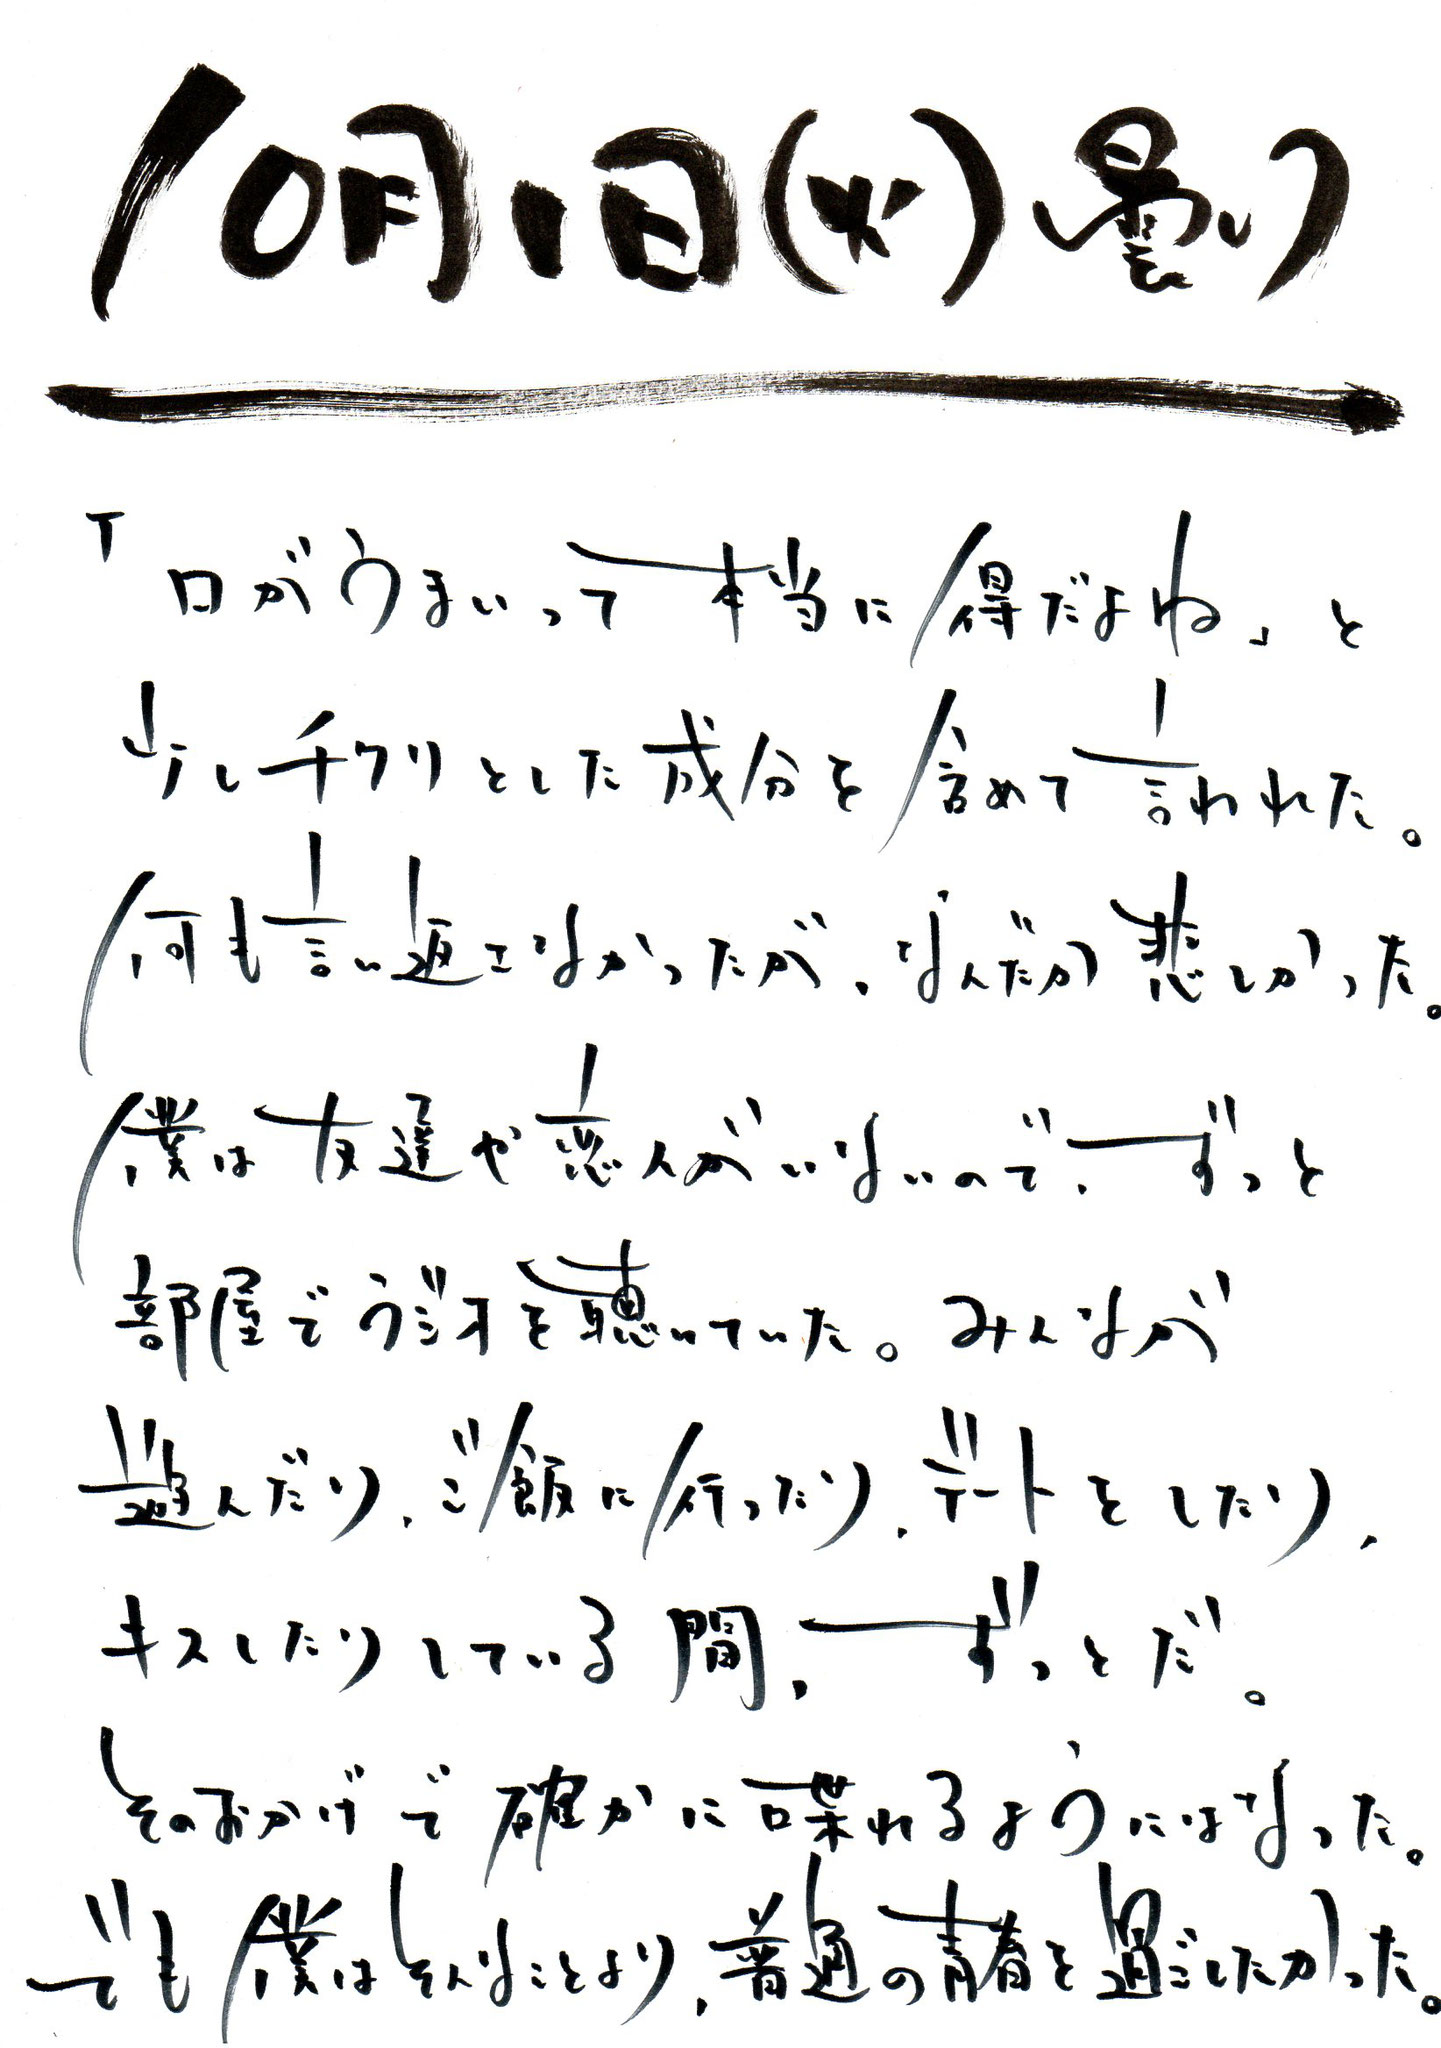 10月1日(火)曇り
「口がうまいって本当に得だよね」と
少しチクリとした成分を含めて言われた。
何も言い返さなかったが、なんだか悲しかった。
僕は友達や恋人がいないので、ずっと
部屋でラジオを聴いていた。みんなが
遊んだり、ご飯に行ったり、デートをしたり、
キスしたりしている間、ずっとだ。
そのおかげで確かに喋れるようにはなった。
でも僕はそんなことより、普通の青春を過ごしたかった。